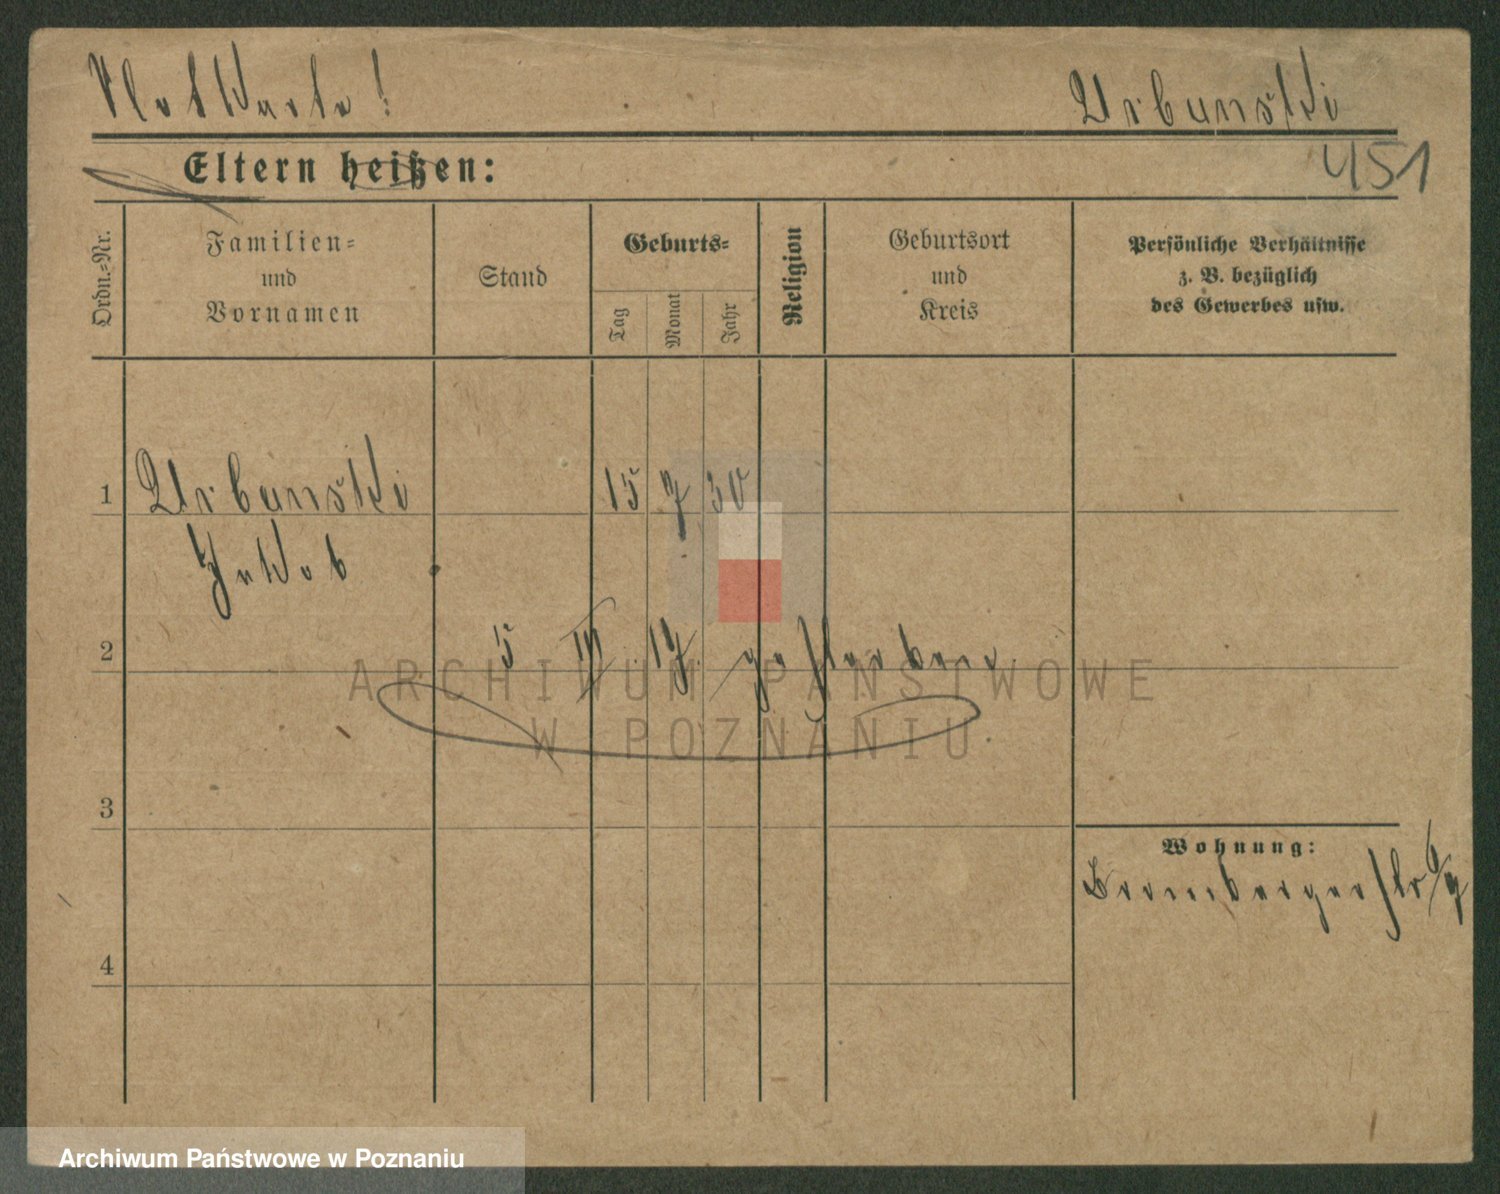 Notkarte! Urbanski
451
Eltern heißen:
Ordn.=Nr.
Familien=
und
Vornamen
Stand
Geburts=
Tag
Monat
Jahr
Religion
Geburtsort
und
Kreis
Persönliche Verhältnisse
z. B. bezüglich
des Gewerbes usw.
1 Urbanski 15 7 30
Jakob
2 5 III 17 gestorben.
3
Wohnung:
Brombergerstr 6/9
4
ARCHIWUM PAŃSTWOWE
W POZNANIU
Archiwum Państwowe w Poznaniu